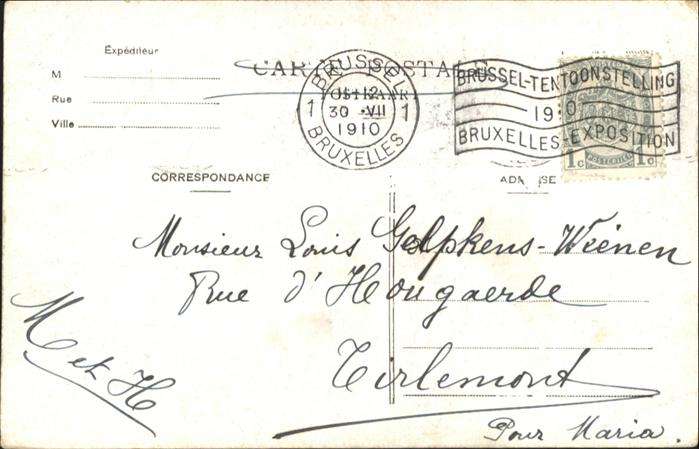 Expéditeur
M
Rue
Ville
CARTE POSTALE
POSTKAART
BRUSSEL
1 1
12
30 VII
1910
BRUXELLES
BRUSSEL-TENTOONSTELLING
1910
BRUXELLES-EXPOSITION
1c POSTERIJEN 1c
CORRESPONDANCE
ADRESSE
Monsieur Louis Gelpkens-Wiénen
Rue d'Hougaerde
Tirlemont
Pour Maria.
M et H